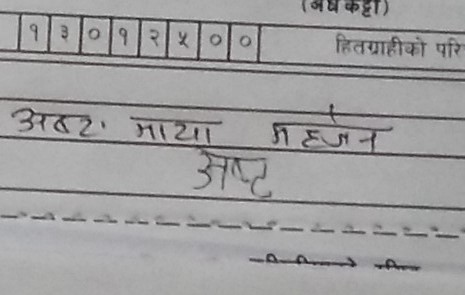 (अर्धकट्टी)
१ ३ ० १ २ ५ ० ० हितग्राहीको परि
अष्ट माया महर्जन
अष्ट